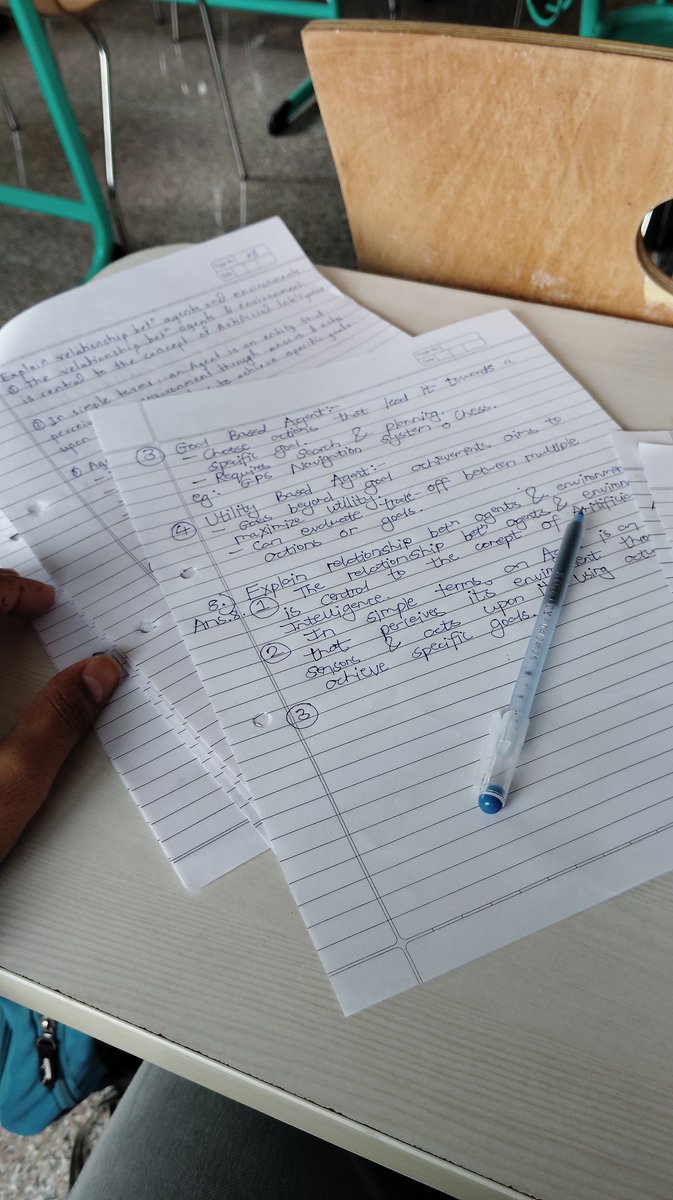 Explain relationship betⁿ agents and environments.
① The relationship betⁿ agents & environment
is central to the concept of Artificial Intelligence
② In simple terms, an Agent is an entity that
environment through sensors & acts
upon to achieve specific goals
③ Goal Based Agent:-
- Choose actions that lead it towards a
specific goal.
- Requires Search & planning.
eg: GPS Navigation system, Chess.
④ Utility Based Agent:-
- Goes beyond goal achievements aims to
maximize utility.
- Can evaluate trade-off between multiple
actions or goals.
8:) Explain relationship betn agents & environmen
Ans.8 ① The relationship betⁿ agents & environ
is central to the concept of Aritificia
Intelligence.
② In simple terms, an Agent is an
that perceives its environment thro
sensors & acts upon it using actu
achieve specific goals.
③